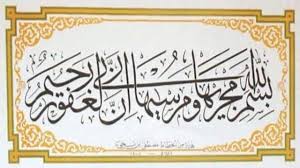 بسم الله مجريها ومرسيها ان ربي لغفور رحيم